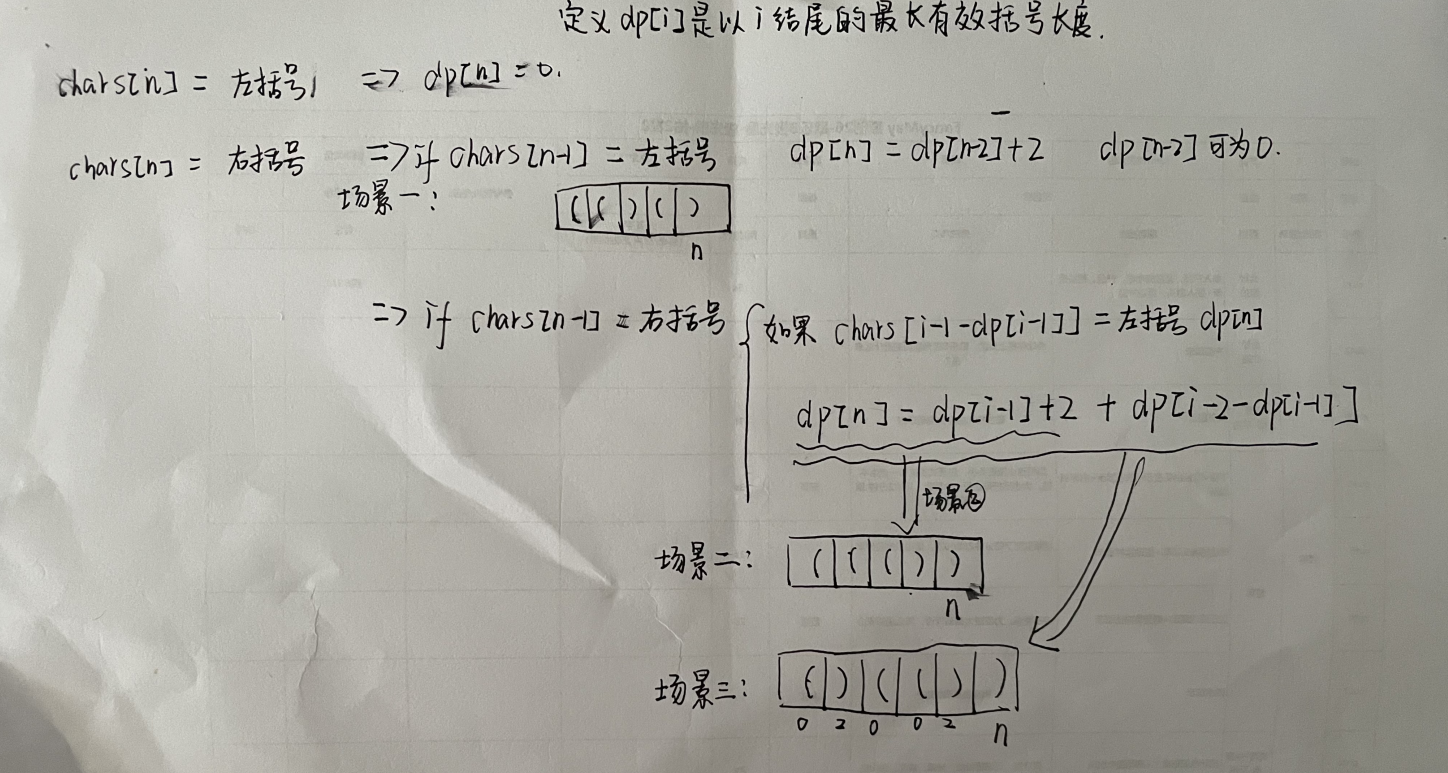 定义 dp[i]是以 i 结尾的最长有效括号长度.
chars[n] = 左括号, => dp[n] = 0.
chars[n] = 右括号 => if chars[n-1] = 左括号 dp[n] = dp[n-2]+2 dp[n-2] 可为0.
场景一:
( ( ) ( )
n
=> if chars[n-1] = 右括号 { 如果 chars[i-1-dp[i-1]] = 左括号 dp[n]
dp[n] = dp[i-1]+2 + dp[i-2-dp[i-1]]
场景②
场景二: ( ( ( ) )
n
场景三: ( ) ( ( ) )
0 2 0 0 2 n